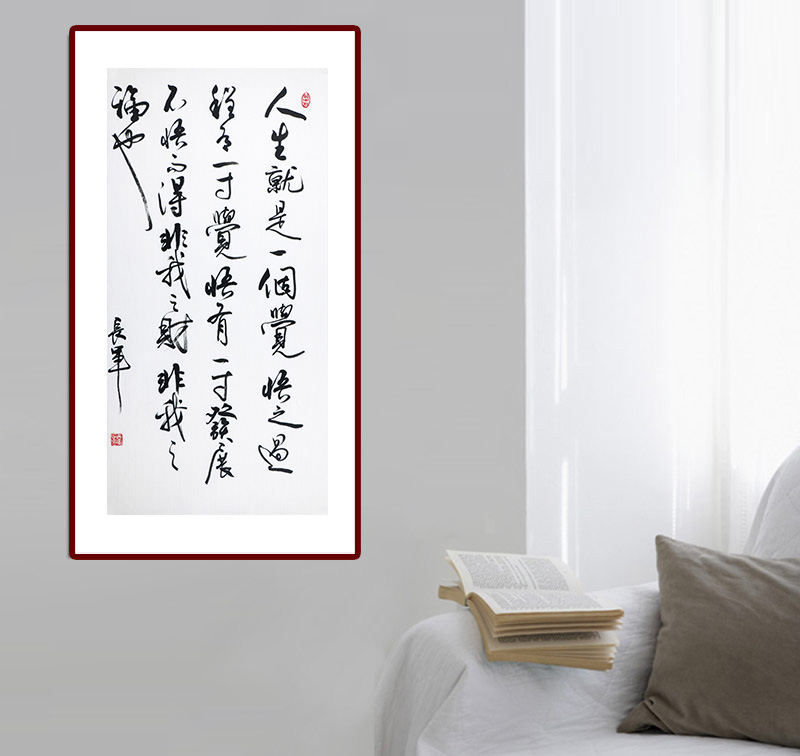 人生就是一個覺悟之過
程有一寸覺悟有一寸發展
不悟而得非我之財非我之
福也
長軍